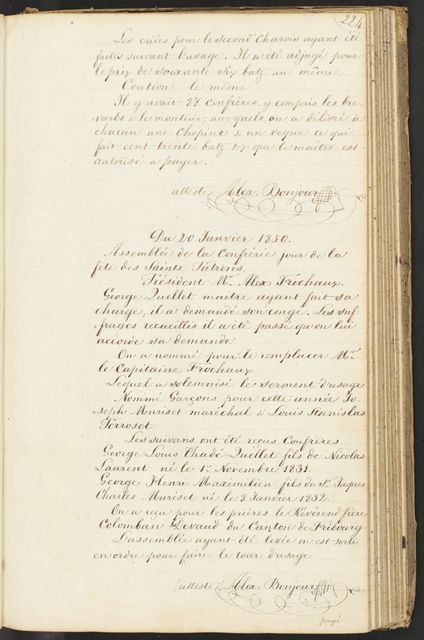 224
Les criées pour le second Charois ayant été
faites suivant l'usage. Il a été adjugé pour
le prix de soixante six batz au même
Caution le même
Il y avait 87 confrères y compris les bre-
vards & le monteur; auxquels on a délivré à
chacun une Chopine & un veque ce qui
fait cent trente batz 2 que le maître est
autorisé a payer.
atteste Alex: Bonjour
Du 20 Janvier 1850.
Assemblée de la Confrérie jour de la
fête des Saints Patrons.
Président Mr. Alex: Frochaux.
George Quellet maitre ayant fait sa
charge, il a demandé son congé. Les suf-
frages recueillis il a été passé qu'on lui
accorde sa demande
On a nommé pour le remplacer Mr.
le Capitaine Frochaux
Lequel a solemnisé le serment d'usage
Nommé Garçons pour cette année Jo-
seph Muriset maréchal & Louis Stanislas
Perroset
Les suivans ont été reçus Confrères
George Louis Thadé Quellet fils de Nicolas
Laurent né le 1r. Novembre 1831.
George Henri Maximilien fils du Sr. Jaques
Charles Muriset né le 8 Janvier 1832.
On a reçu pour les prières le Révérend frère
Colomban Devaud du Canton de Fribourg
L'assemblée ayant été levée on est sorti
en ordre pour faire le tour d'usage
atteste Alex: Bonjour
payé